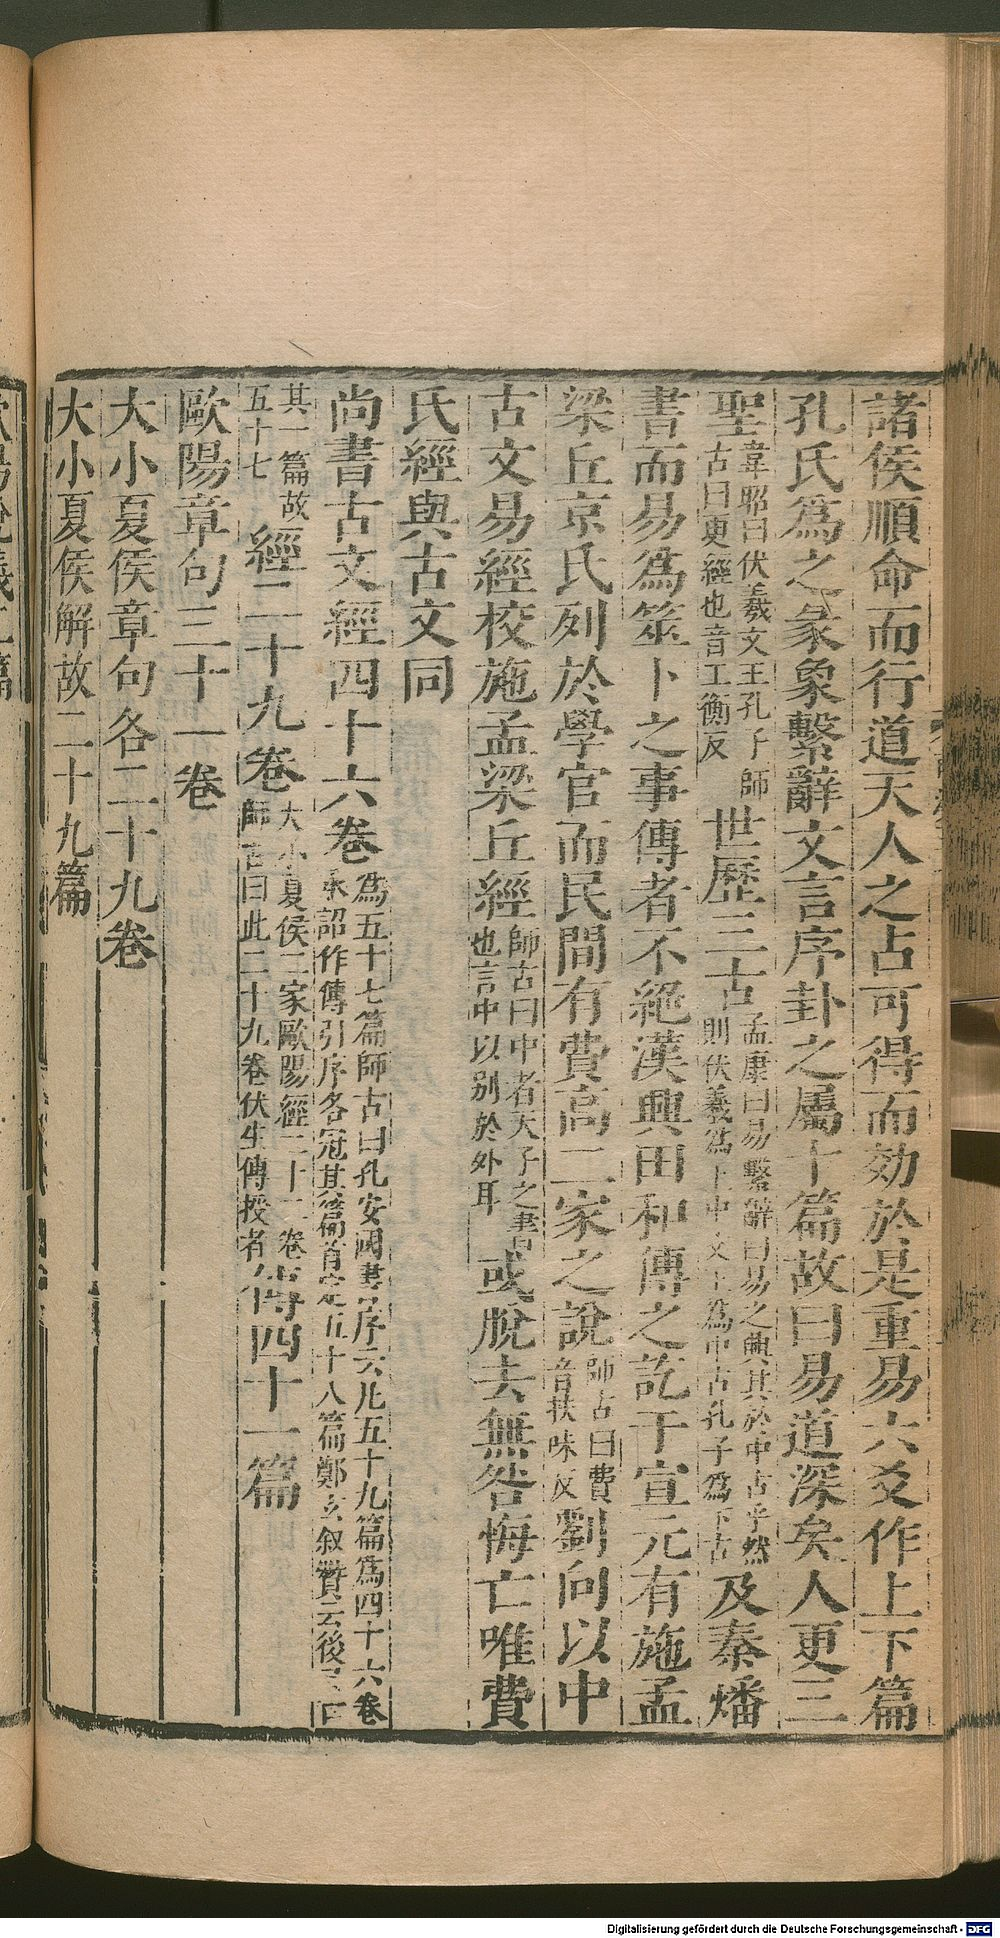 諸侯順命而行道天人之占可得而効於是重易六爻作上下篇
孔氏爲之彖象繫辭文言序卦之屬十篇故曰易道深矣人更三
聖韋昭曰伏羲文王孔子師古曰更經也音工衡反世歷三古孟康曰易繫辭曰易之興其於中古乎然則伏羲爲上古文王爲中古孔子爲下古及秦燔
書而易爲筮卜之事傳者不絕漢興田和傳之訖于宣元有施孟
梁丘京氏列於學官而民間有費高二家之說師古曰費音扶味反劉向以中
古文易經校施孟梁丘經師古曰中者天子之書也言中以别於外耳或脫去無咎悔亡唯費
氏經與古文同
尚書古文經四十六卷爲五十七篇師古曰孔安國書序云凡五十九篇爲四十六卷承詔作傳引序各冠其篇首定五十八篇鄭玄叙贊云後又亡
其一篇故五十七經二十九卷大小夏侯二家歐陽經二十二卷師古曰此二十九卷伏生傳授者傳四十一篇
歐陽章句三十一卷
大小夏侯章句各二十九卷
大小夏侯解故二十九篇
Digitalisierung gefördert durch die Deutsche Forschungsgemeinschaft - DFG